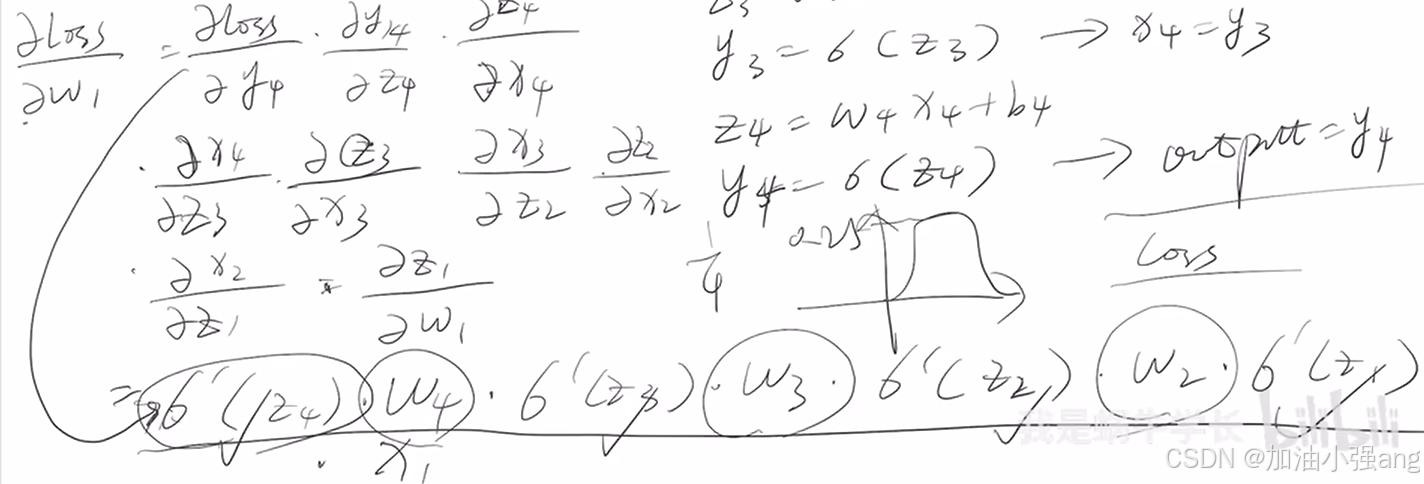 ∂loss/∂w₁ = ∂loss/∂y₄ · ∂y₄/∂z₄ · ∂z₄/∂x₄
· ∂x₄/∂z₃ · ∂z₃/∂x₃ ∂x₃/∂z₂ · ∂z₂/∂x₂
· ∂x₂/∂z₁ · ∂z₁/∂w₁
= σ'(z₄) · w₄ · σ'(z₃) · w₃ · σ'(z₂) · w₂ · σ'(z₁)
· x₁
y₃ = σ(z₃) → x₄ = y₃
z₄ = w₄x₄ + b₄
y₄ = σ(z₄) → output = y₄
1/4
0.25
loss
我是蜗牛学长 bilibili
CSDN @加油小强ang